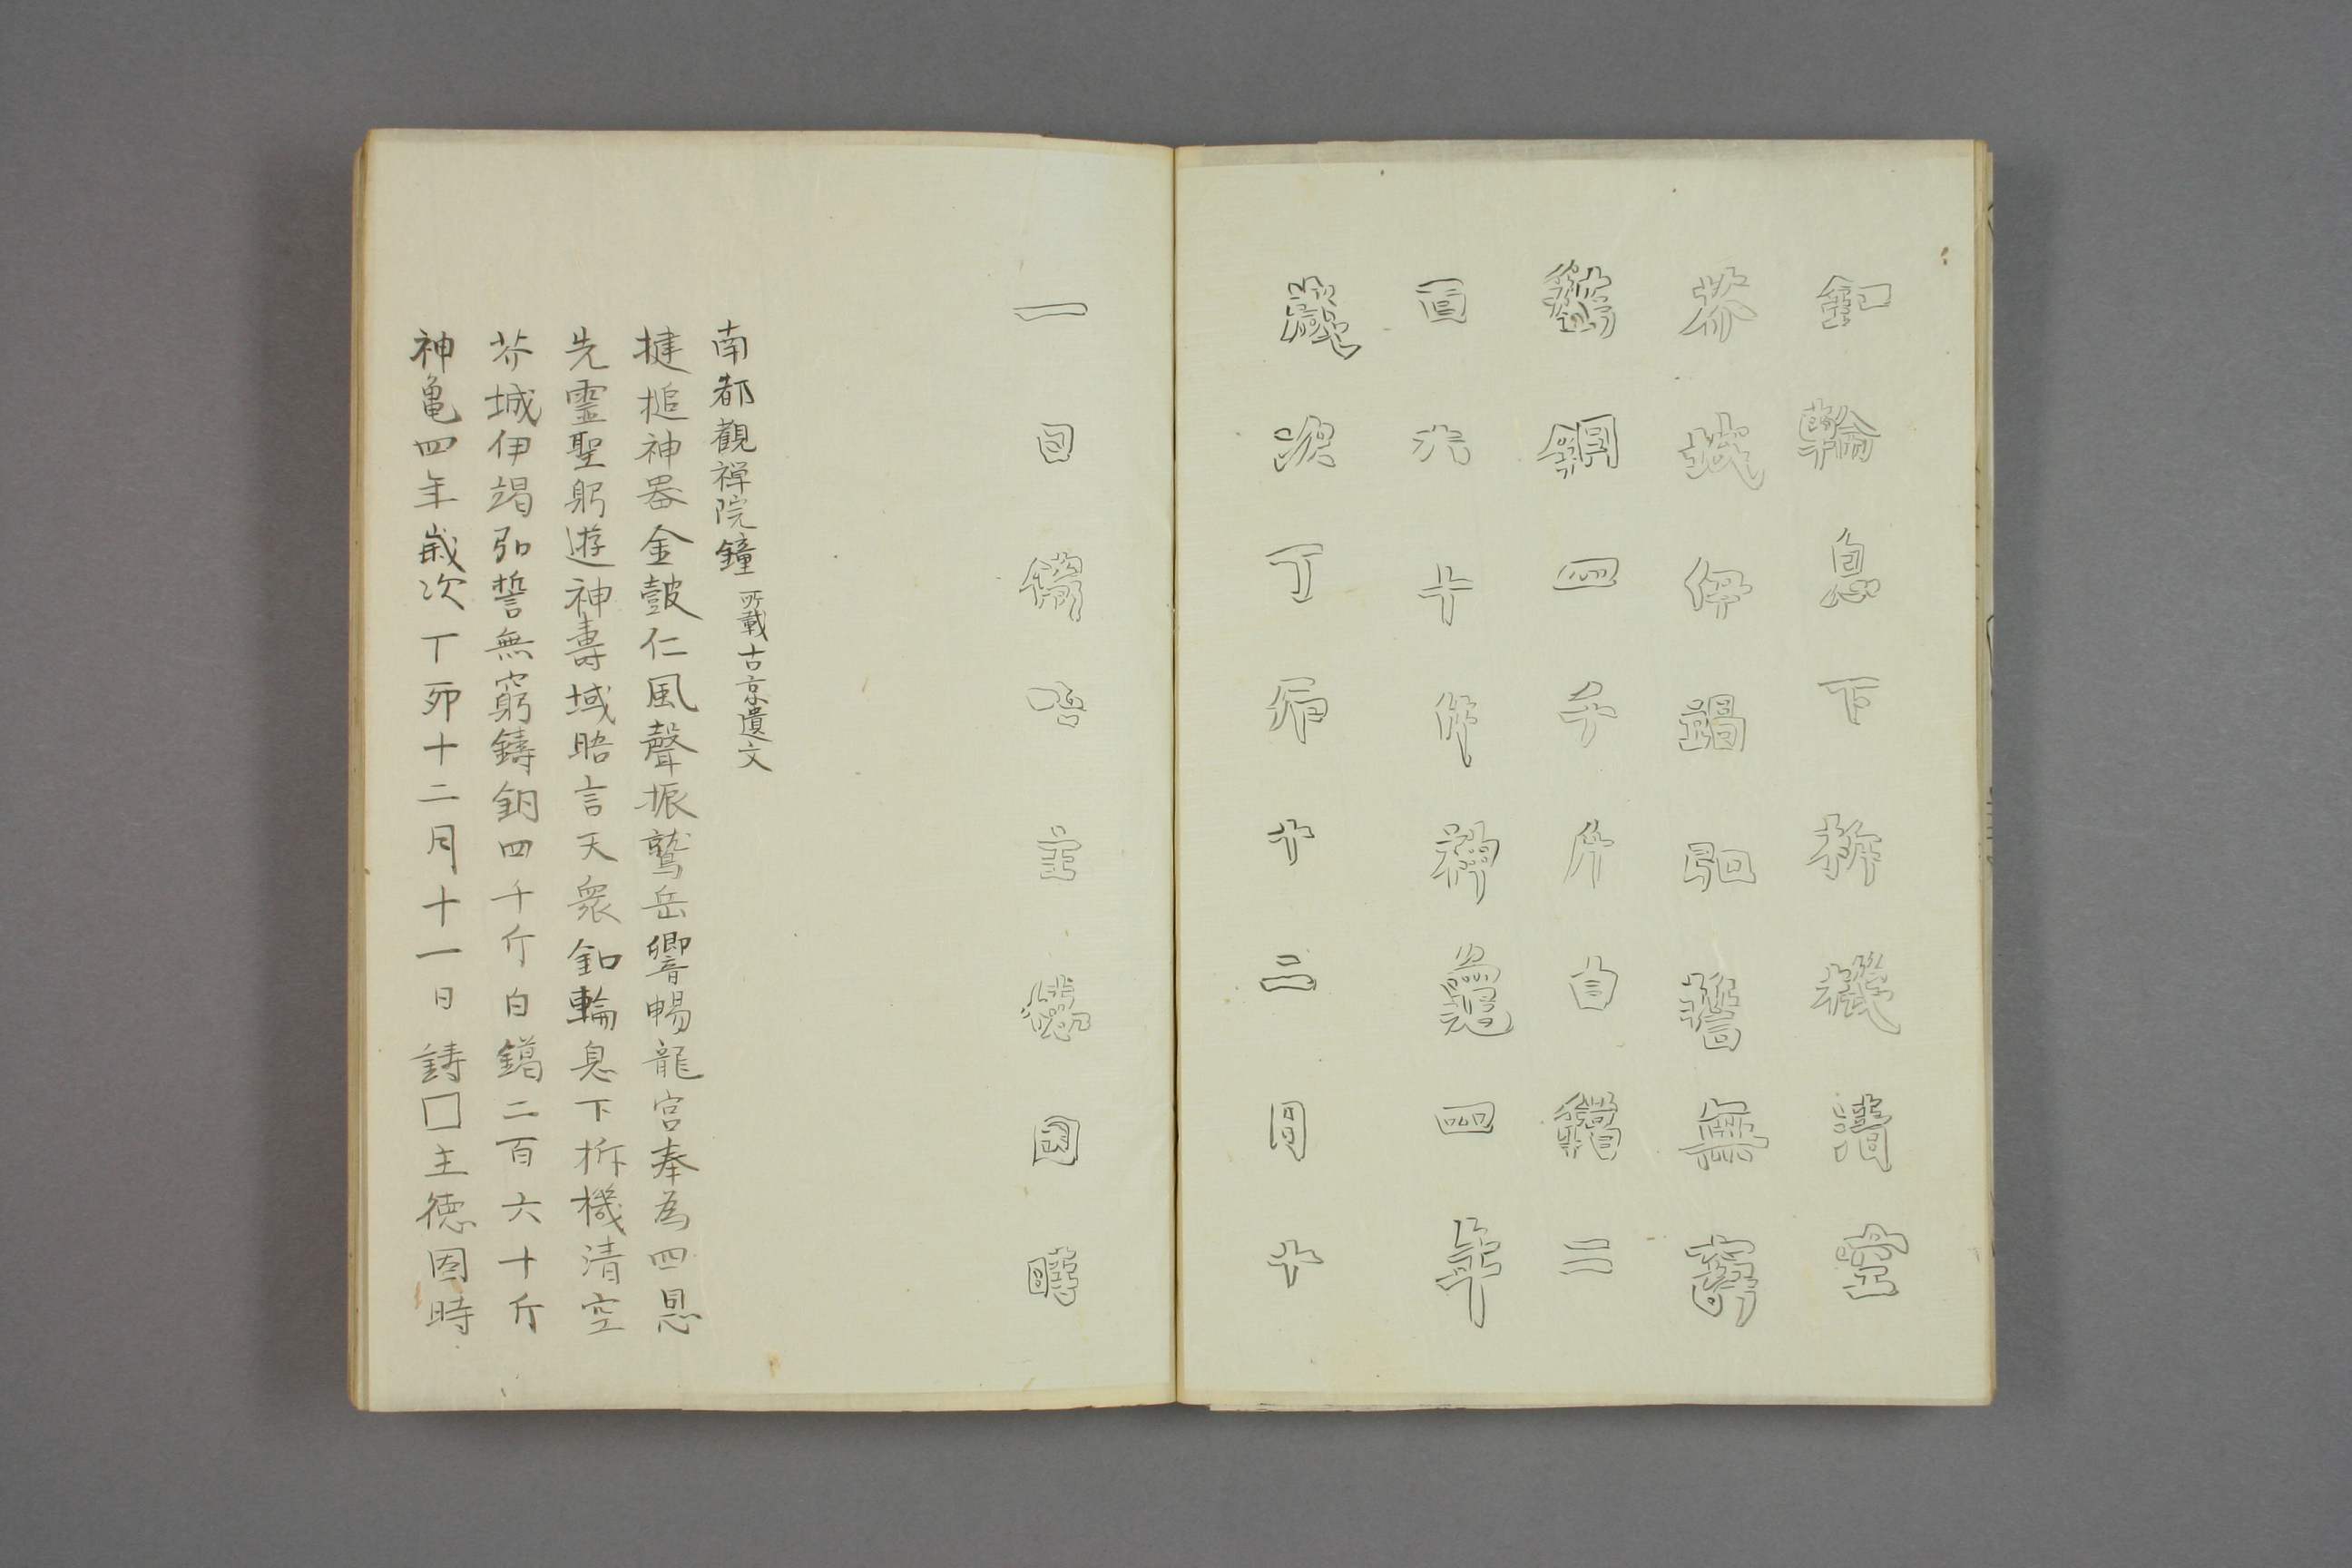 釦輪息下拆機清空
芥城伊竭弘誓無窮
鑄銅四千斤白鑞二
百六十斤神龜四年
歳次丁卯十二月十
一日鑄 主德因時
南都觀禅院鐘 所載古京遺文
揵搥神器金皷仁風聲振鷲岳響暢龍宮奉為四恩
先霊聖躬遊神壽域晤言天衆釦輪息下拆機清空
芥城伊竭弘誓無窮鑄銅四千斤白鑞二百六十斤
神亀四年歳次丁卯十二月十一日鋳□主徳因時